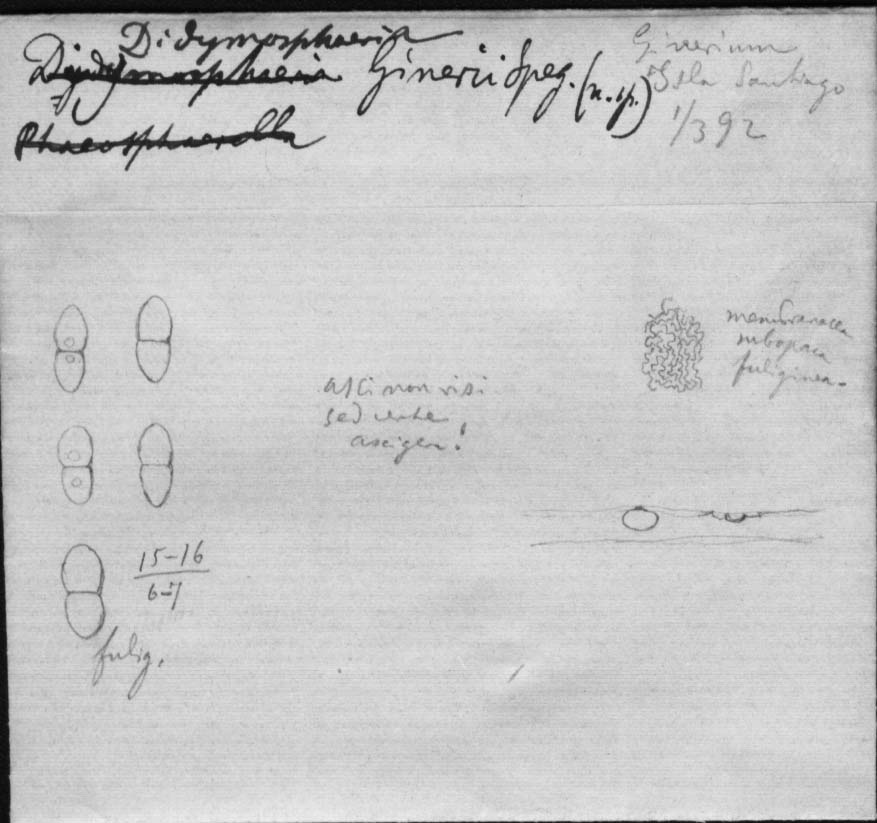 Didymosphaeria
Didymosphaeria Ginerii Speg. (n. sp.)
Phaeosphaerella
Ginerium
Isla Santiago
1/3 92
membranacea
subopaca
fuliginea.
asci non visi
sed certe
ascigera!
15-16
6-7
fulig.